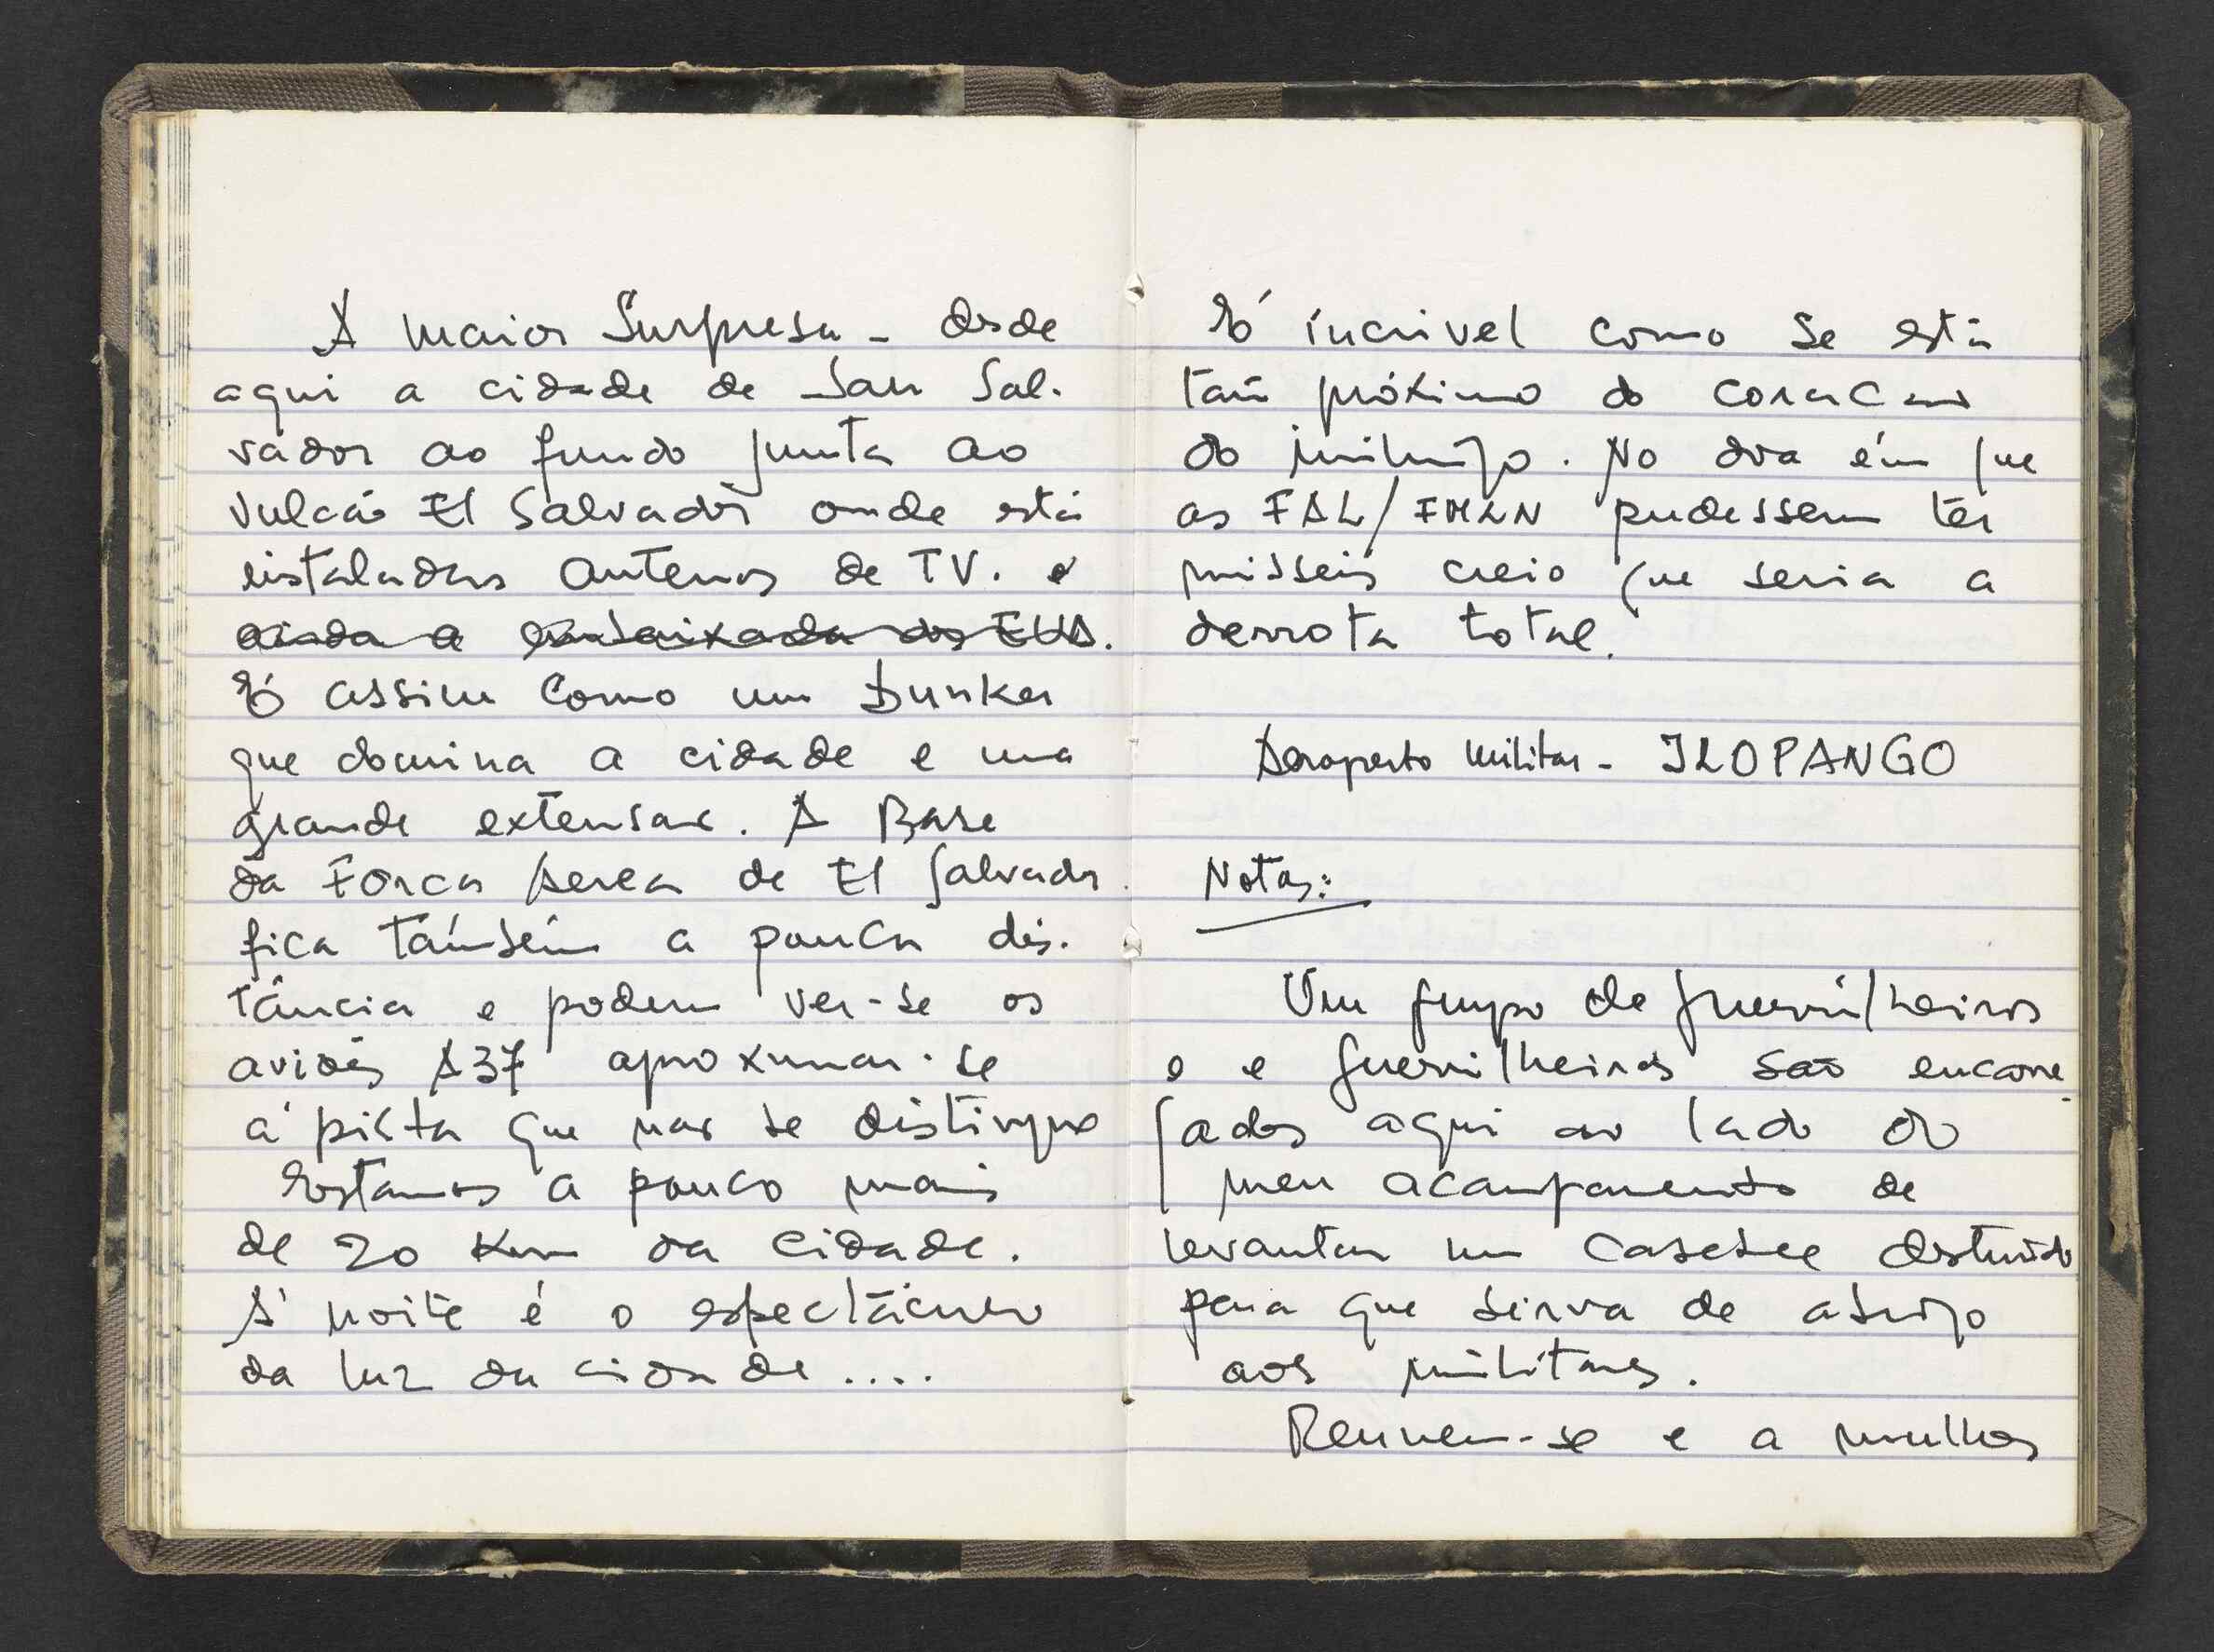 A maior Surpresa - desde
aqui a cidade de San Sal-
vador ao fundo junta ao
vulcão El Salvador onde está
instaladas antenas de TV. e
ainda a embaixada dos EUA.
É assim como um bunker
que domina a cidade e uma
grande extensão. A Base
da Forca Aerea de El Salvador
fica também a pouca dis-
tância e podem ver-se os
aviões A37 aproximar-se
á pista que não se distingue
Estamos a pouco mais
de 20 Km da cidade.
Á noite é o espectáculo
da luz da cidade ....
É incrivel como se está
tão próximo do coracão
do inimigo. No dia em que
as FAL/FMLN pudessem ter
misseis creio que seria a
derrota total.
Aeroporto Militar - ILOPANGO
Notas:
Um grupo de guerrilheiros
e guerrilheiras são encarre-
gados aqui ao lado do
meu acampamento de
levantar um casebre destruido
para que sirva de abrigo
aos militares.
Reunem-se e a mulher